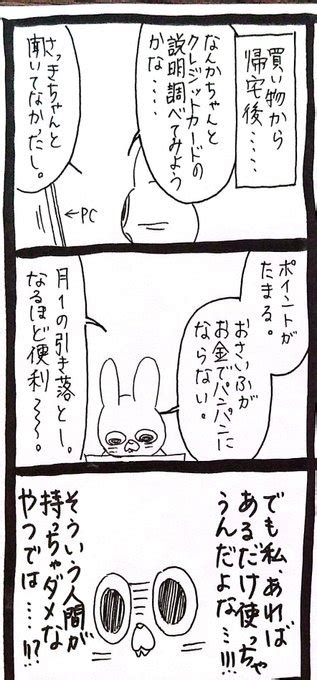 買い物から
帰宅後……
なんかちゃんと
クレジットカードの
説明調べてみよう
かな……
さっきちゃんと
聞いてなかったし。
←PC
ポイントが
たまる。
おさいふが
お金でパンパンに
ならない。
月1の引き落とし。
なるほど便利〜〜。
でも私、あれば
あるだけ使っちゃ
うんだよな…!!!
そういう人間が
持っちゃダメな
やつでは……!!?